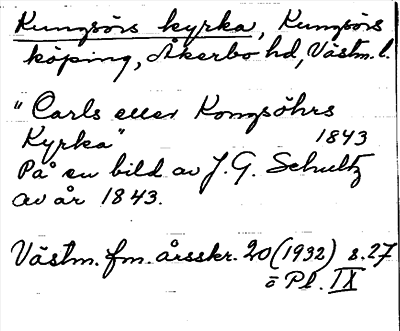 Kungsörs kyrka, Kungsörs
köping, Åkerbo hd, Västm. l.
"Carls eller Kongsöhrs
Kyrka" 1843
På en bild av J. G. Schultz
av år 1843.
Västm. fm. årsskr. 20 (1932) s. 27
o Pl. IX